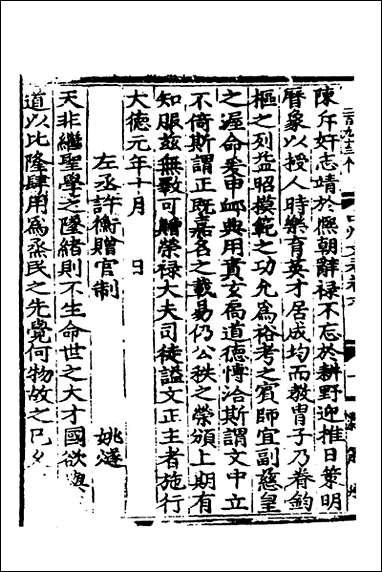 陳斥奸志靖於熈朝辭禄不忘於耕野迎推日策明
曆象以授人時樂育英才居成均而敎胄子乃眷鈞
樞之列益昭模範之功允爲裕考之賓師宜副慈皇
之渥命爰申䘏典用賁玄扄道德愽洽斯謂文中立
不倚斯謂正旣嘉名之載易仍公秩之榮頒上期有
知服兹無斁可贈榮禄大夫司徒諡文正主者施行
大德元年十月　日
左丞許衡贈官制
姚燧
天非繼聖學之墜緒則不生命世之大才國欲與
道以比隆肆用爲烝民之先覺何物故之已久